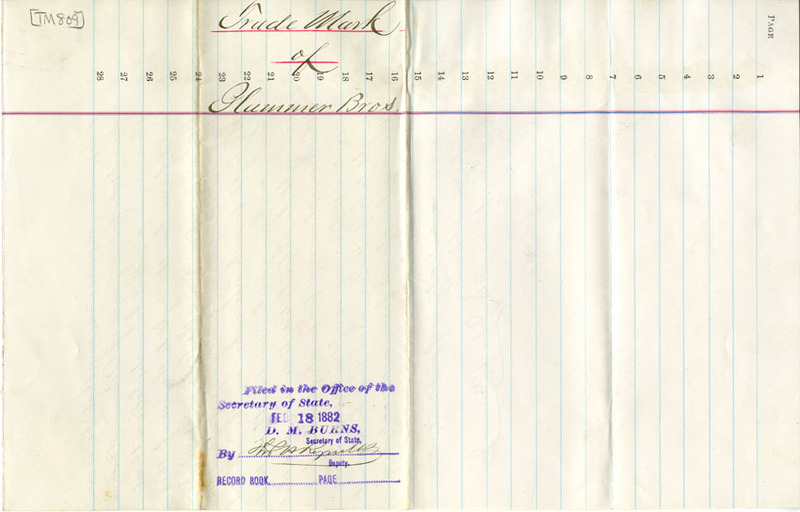 [TM809]
Trade Mark
of
Plummer Bros.
PAGE
1
2
3
4
5
6
7
8
9
10
11
12
13
14
15
16
17
18
19
20
21
22
23
24
25
26
27
28
Filed in the Office of the
Secretary of State,
FEB 18 1882
D. M. BURNS,
Secretary of State.
By
Deputy.
RECORD BOOK PAGE